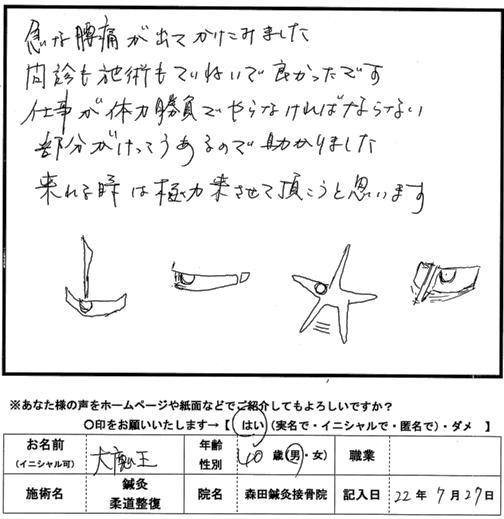 急な腰痛が出てかけこみました
問診も施術もていねいで良かったです
仕事が体力勝負でやらなければならない
部分がけっこうあるので助かりました
来れる時は極力来させて頂こうと思います
※あなた様の声をホームページや紙面などでご紹介してもよろしいですか？
〇印をお願いいたします→【 はい（実名で・イニシャルで・匿名で）・ダメ 】
お名前
（イニシャル可）
大魔王
年齢
性別
40 歳（男・女）
職業
施術名
鍼灸
柔道整復
院名
森田鍼灸接骨院
記入日
22年 7月27日